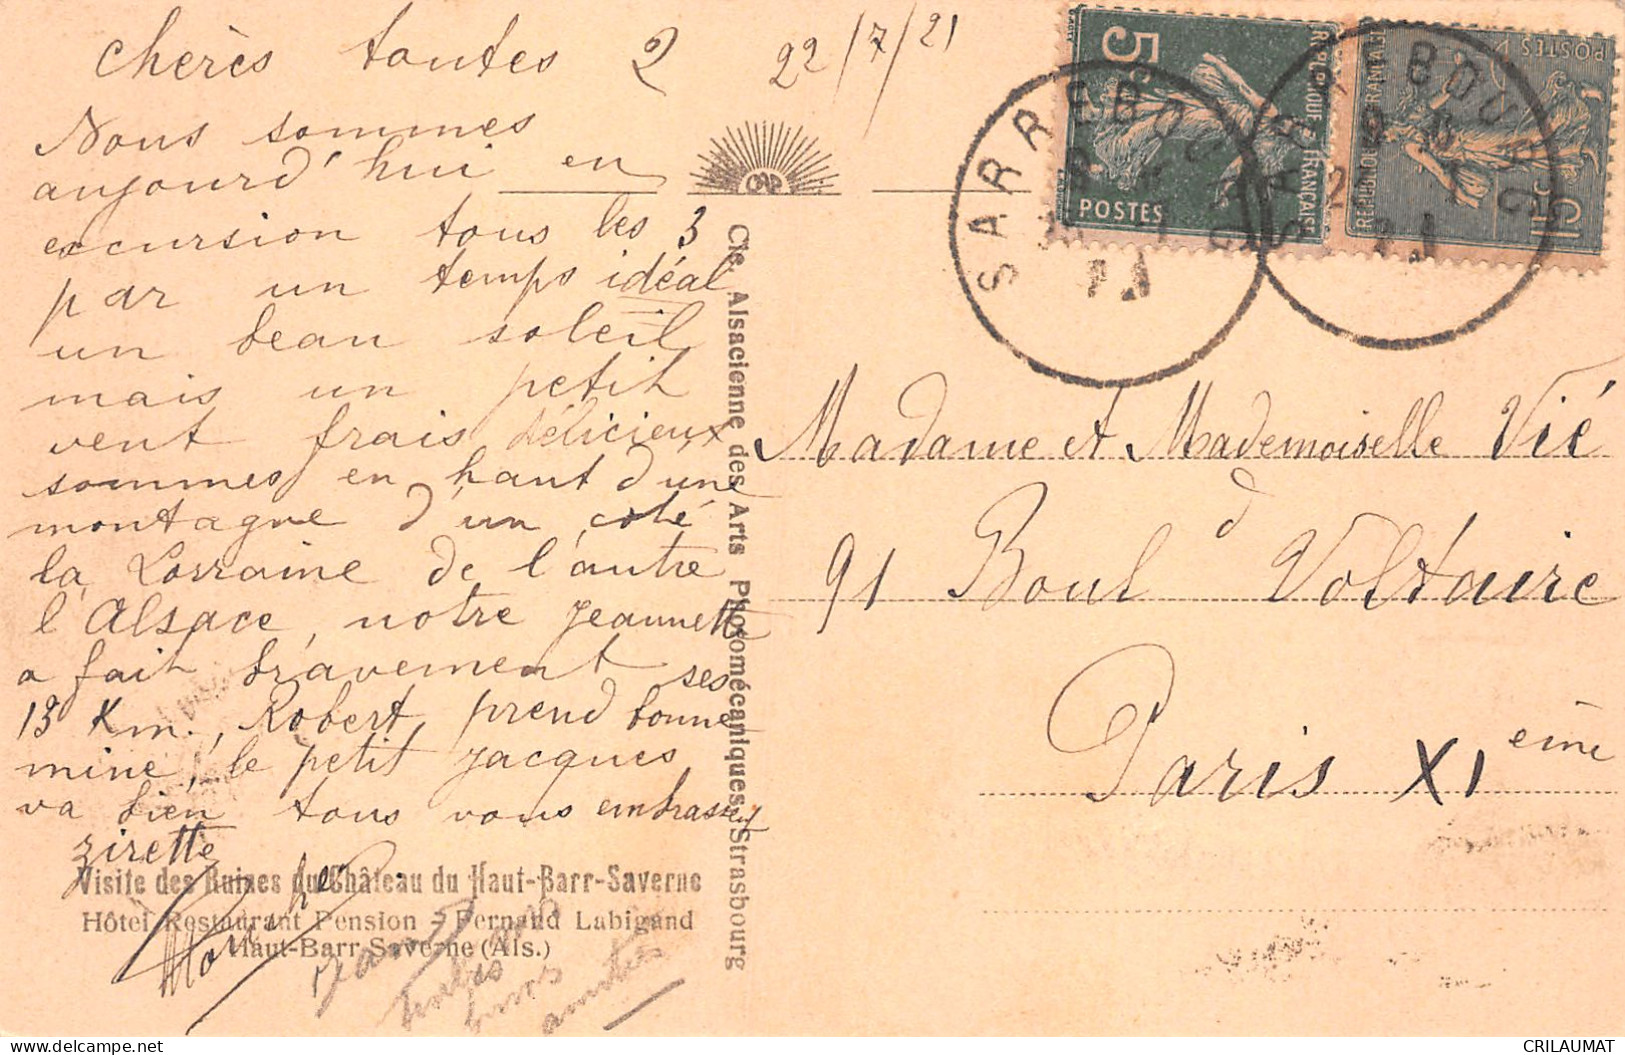 chères toutes 2 22/7/21
Nous sommes
aujourd'hui en
excursion tous les 3
par un temps idéal
un beau soleil
mais un petit
vent frais délicieux
sommes en haut d'une
montagne d'un coté
la Lorraine de l'autre
l'Alsace, notre Jeannette
a fait bravement ses
13 Km., Robert, prend bonne
mine, le petit Jacques
va bien tous vous embrassent
zirette
Visite des Ruines du Château du Haut-Barr-Saverne
Hôtel Restaurant Pension - Fernand Labigand
Haut-Barr Saverne (Als.)
amitiés
Cie. Alsacienne des Arts Photomécaniques, Strasbourg
5c
REPUBLIQUE FRANÇAISE
POSTES
REPUBLIQUE FRANÇAISE
POSTES
15c
SARREBOURG
SARREBOURG
Madame et Mademoiselle Vié
91 Bould Voltaire
Paris XIème
CRILAUMAT